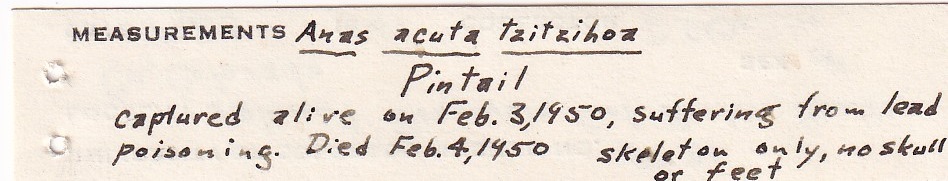 MEASUREMENTS Anas acuta tzitzihoa
Pintail
captured alive on Feb. 3, 1950, suffering from lead
poisoning. Died Feb. 4, 1950 skeleton only, no skull
or feet